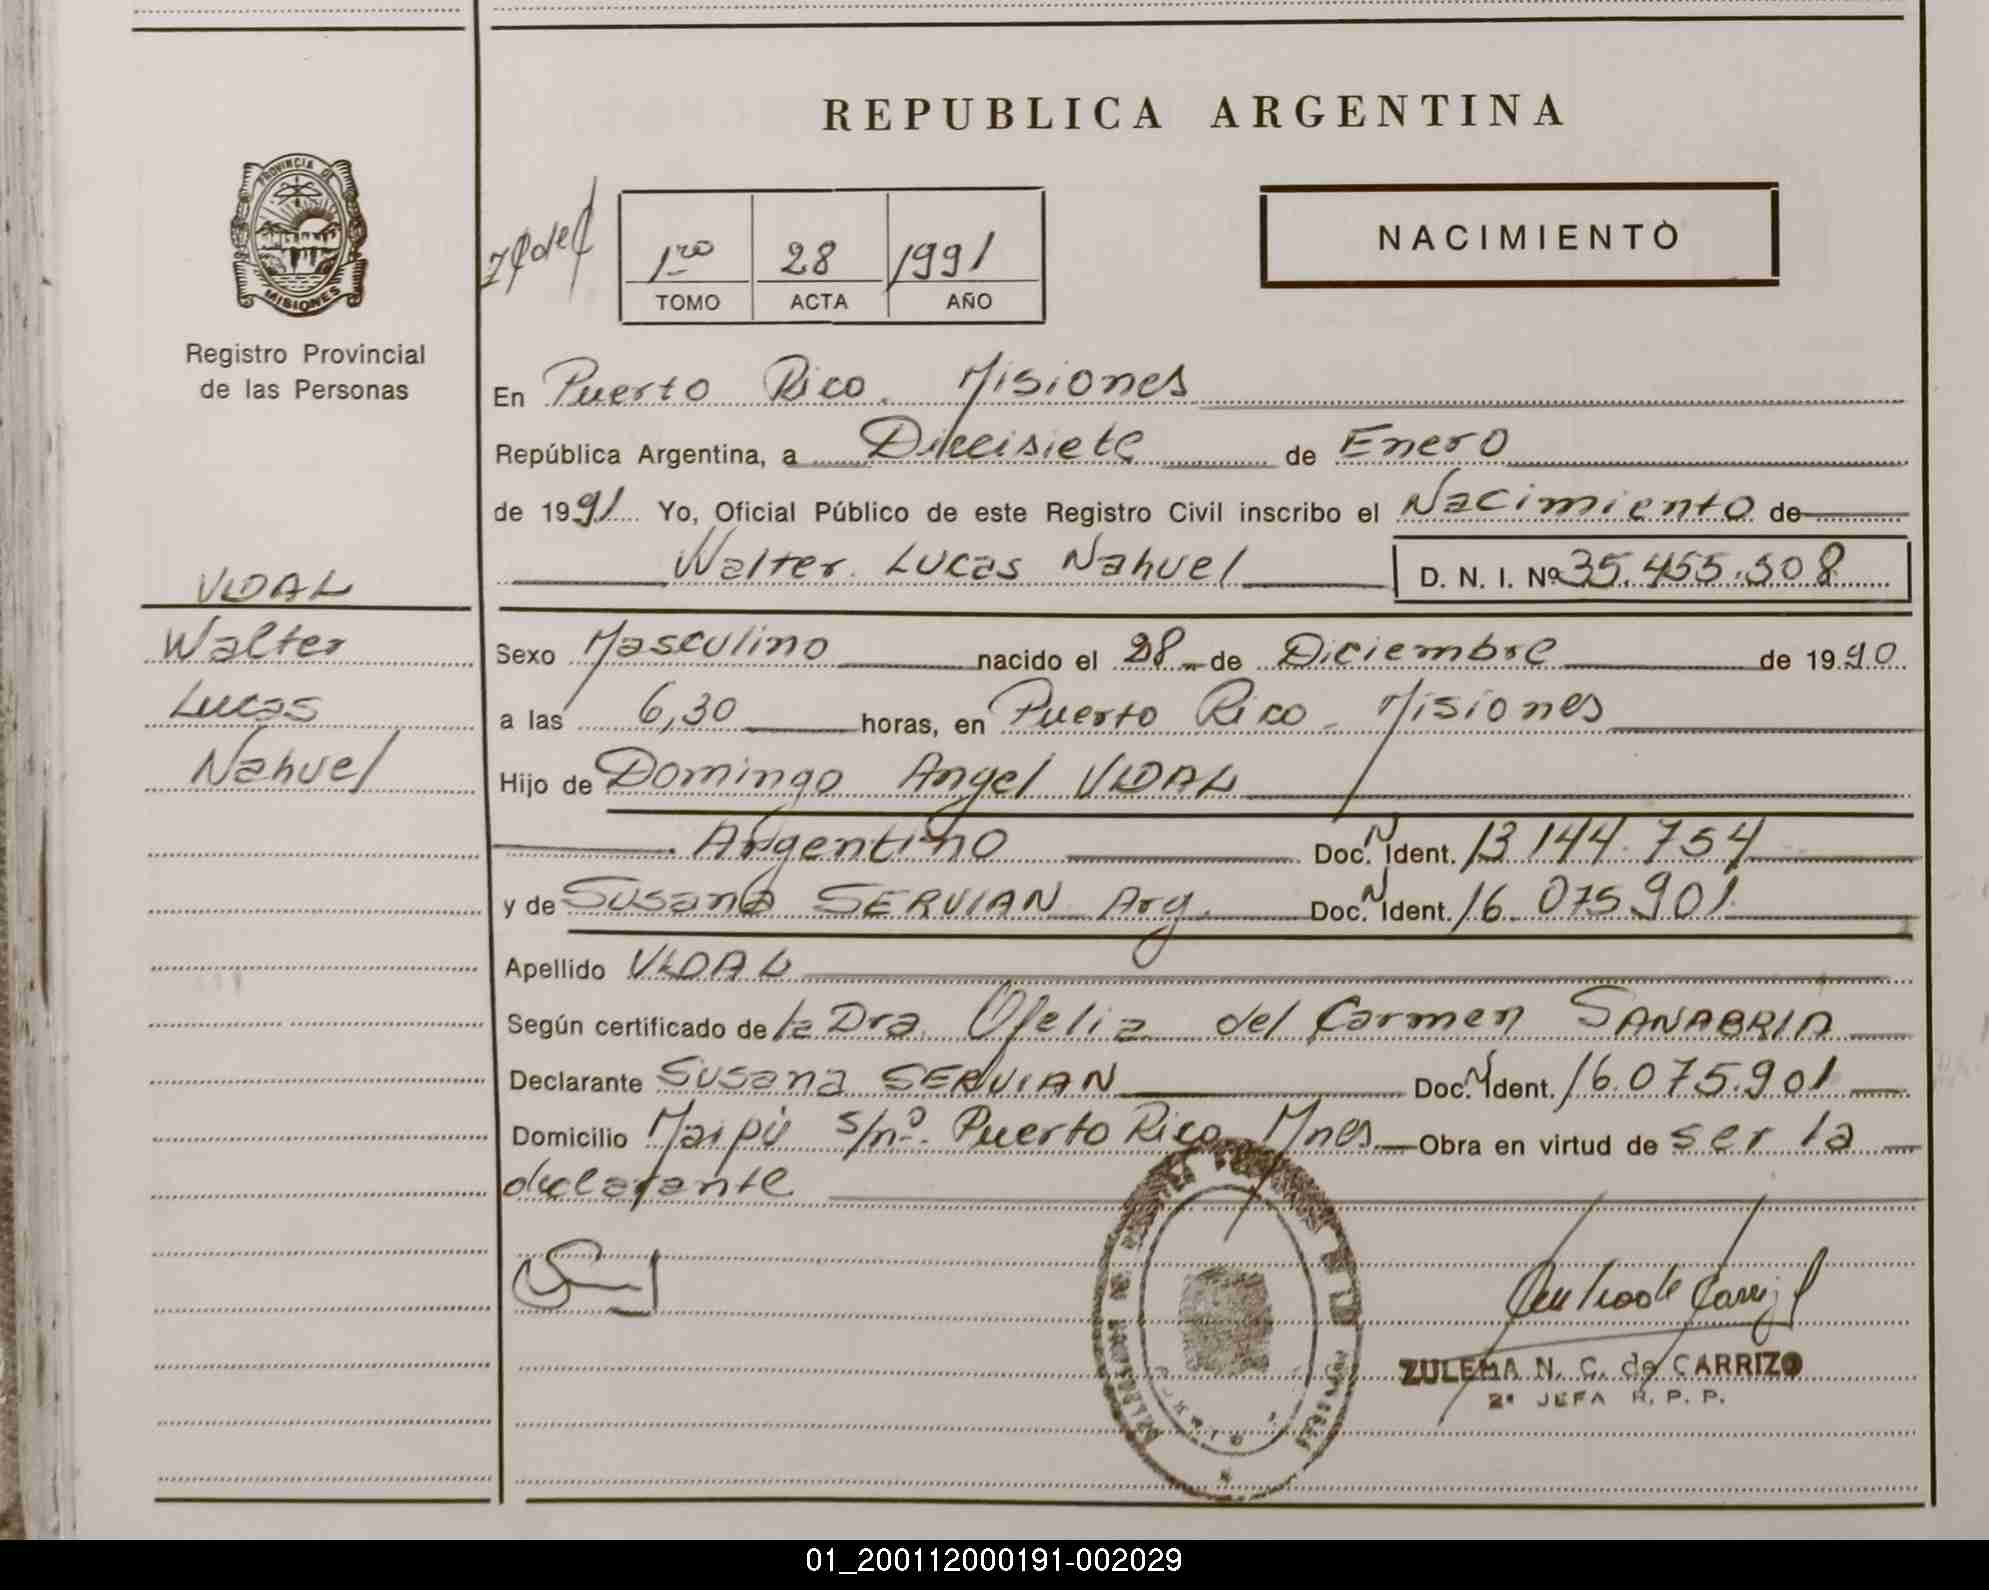 REPUBLICA ARGENTINA
PROVINCIA DE
MISIONES
Registro Provincial
de las Personas
1ro 28 1991
TOMO ACTA AÑO
NACIMIENTO
En Puerto Rico. Misiones
República Argentina, a Diecisiete de Enero
de 1991 Yo, Oficial Público de este Registro Civil inscribo el Nacimiento de
Walter Lucas Nahuel D. N. I. Nº 35.455.508
VIDAL
Walter
Lucas
Nahuel
Sexo Masculino nacido el 28 de Diciembre de 1990
a las 6,30 horas, en Puerto Rico - Misiones
Hijo de Domingo Angel VIDAL
Argentino Doc. N Ident. 13.144.754
y de Susana SERVIAN Arg. Doc. N Ident. 16.075.901
Apellido VIDAL
Según certificado de la Dra. Ofelia del Carmen SANABRIA
Declarante Susana SERVIAN Doc. N Ident. 16.075.901
Domicilio Maipú s/nº. Puerto Rico Mnes Obra en virtud de ser la
declarante
ZULEMA N. C. de CARRIZO
2ª JEFA R. P. P.
01_200112000191-002029